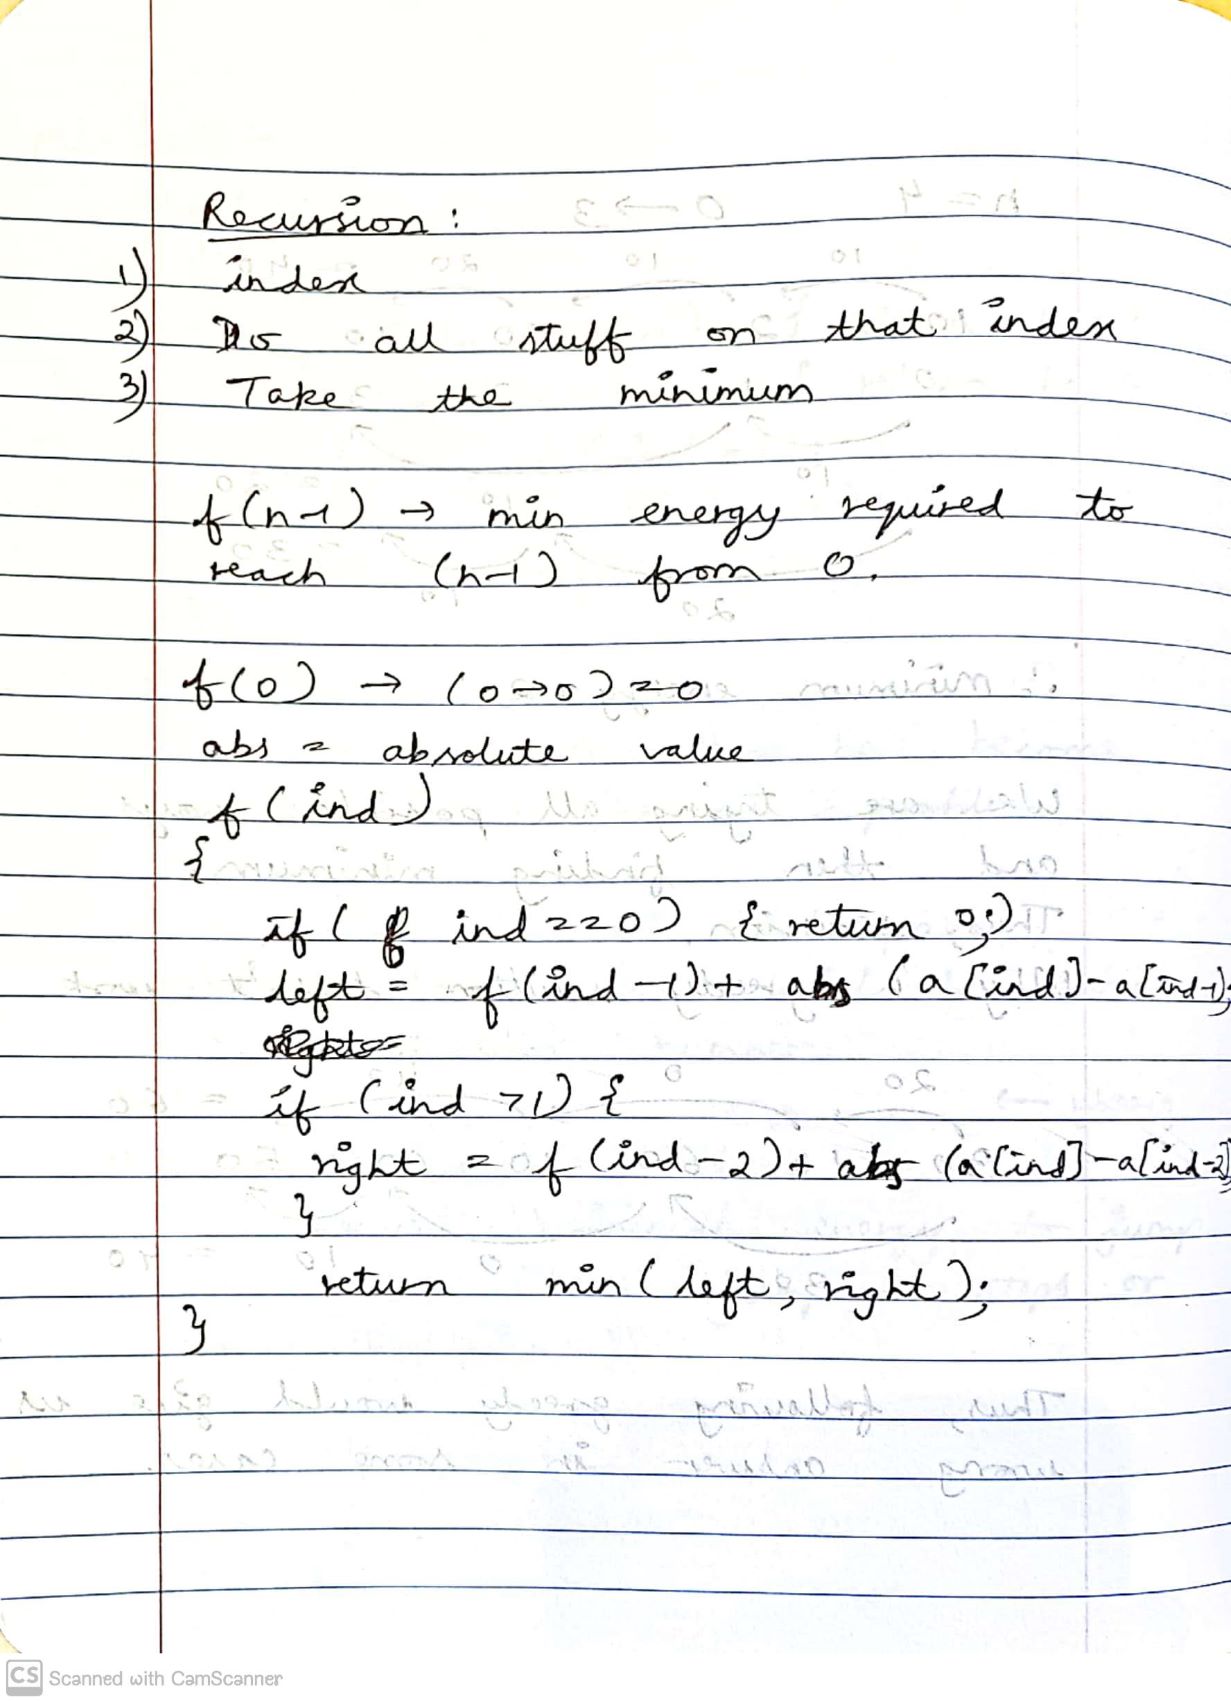 Recursion :
1) index
2) Do all stuff on that index
3) Take the minimum
f(n-1) → min energy required to
reach (n-1) from 0.
f(0) → (0→0) = 0
abs = absolute value
f(ind)
{
if ( ind == 0) { return 0;}
left = f(ind-1) + abs (a[ind]-a[ind-1];
if (ind >1) {
right = f(ind-2)+ abs (a[ind]-a[ind-2]
}
return min(left, right);
}
CS Scanned with CamScanner